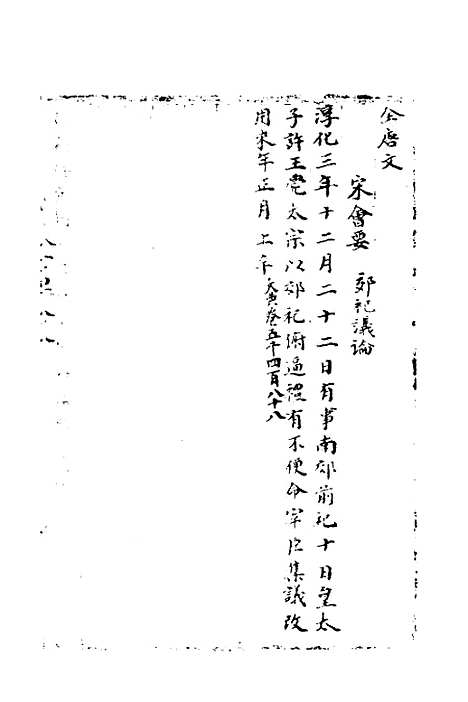 全唐文
宋會要 郊祀議論
淳化三年十二月二十二日有事南郊前祀十日皇太
子許王薨太宗以郊祀俯逼禮有不便令宰臣集議改
用來年正月上辛大典卷五千四百八十八